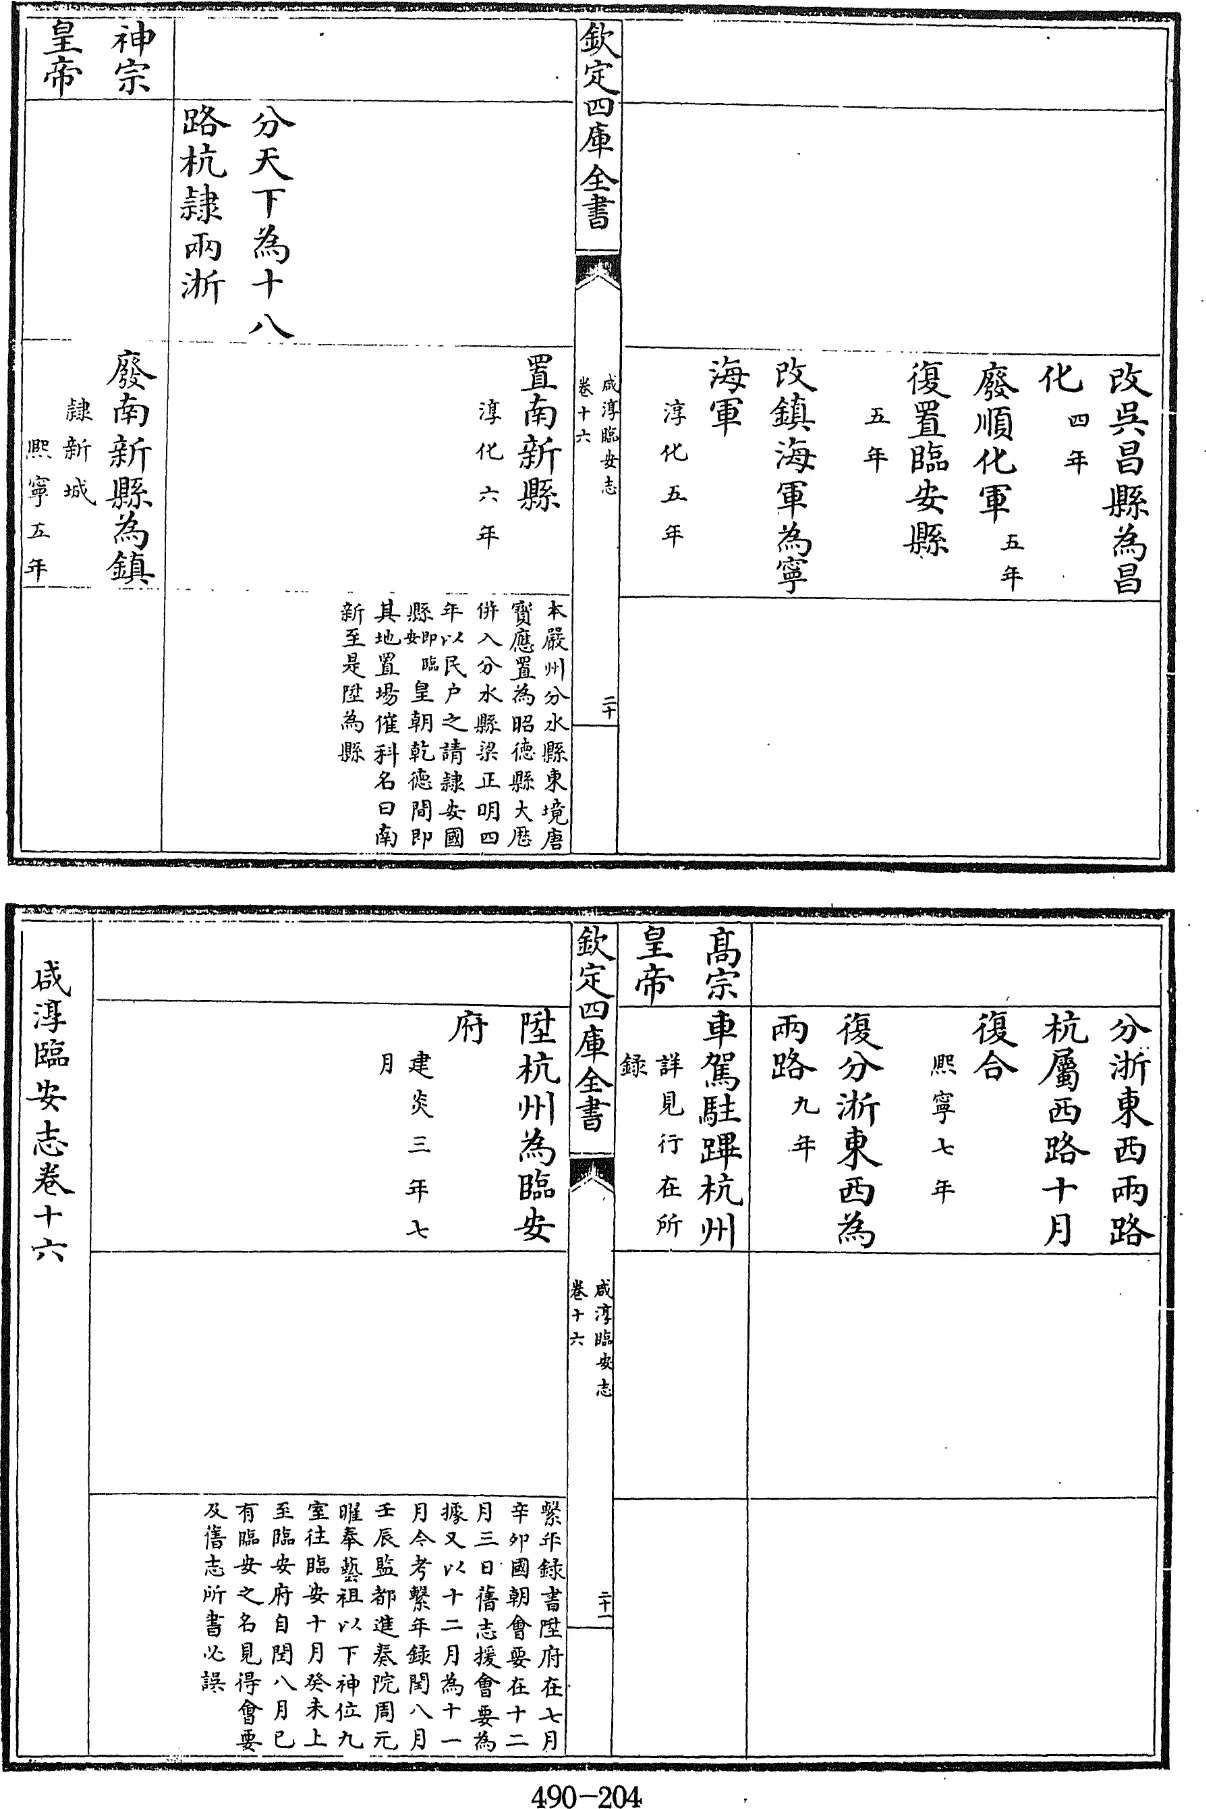 改吳昌縣為昌
化四年
廢順化軍五年
復置臨安縣
五年
改鎮海軍為寧
海軍
淳化五年
欽定四庫全書
咸淳臨安志
卷十六
二十
置南新縣
淳化六年
本嚴州分水縣東境唐
寳應置為昭德縣大厯
併入分水縣梁正明四
年以民户之請隷安國
縣即臨安皇朝乾德間即
其地置場催科名曰南
新至是陞為縣
分天下為十八
路杭隷兩浙
神宗
皇帝
廢南新縣為鎮
隷新城
熙寧五年
分浙東西兩路
杭屬西路十月
復合
熙寧七年
復分浙東西為
兩路九年
髙宗
皇帝
車駕駐蹕杭州
詳見行在所
録
欽定四庫全書
咸淳臨安志
卷十六
二十一
陞杭州為臨安
府
建炎三年七
月
繫年録書陞府在七月
辛卯國朝會要在十二
月三日舊志援會要為
據又以十二月為十一
月今考繫年録閏八月
壬辰監都進奏院周元
曜奉藝祖以下神位九
室往臨安十月癸未上
至臨安府自閏八月已
有臨安之名見得會要
及舊志所書必誤
咸淳臨安志卷十六
490-204